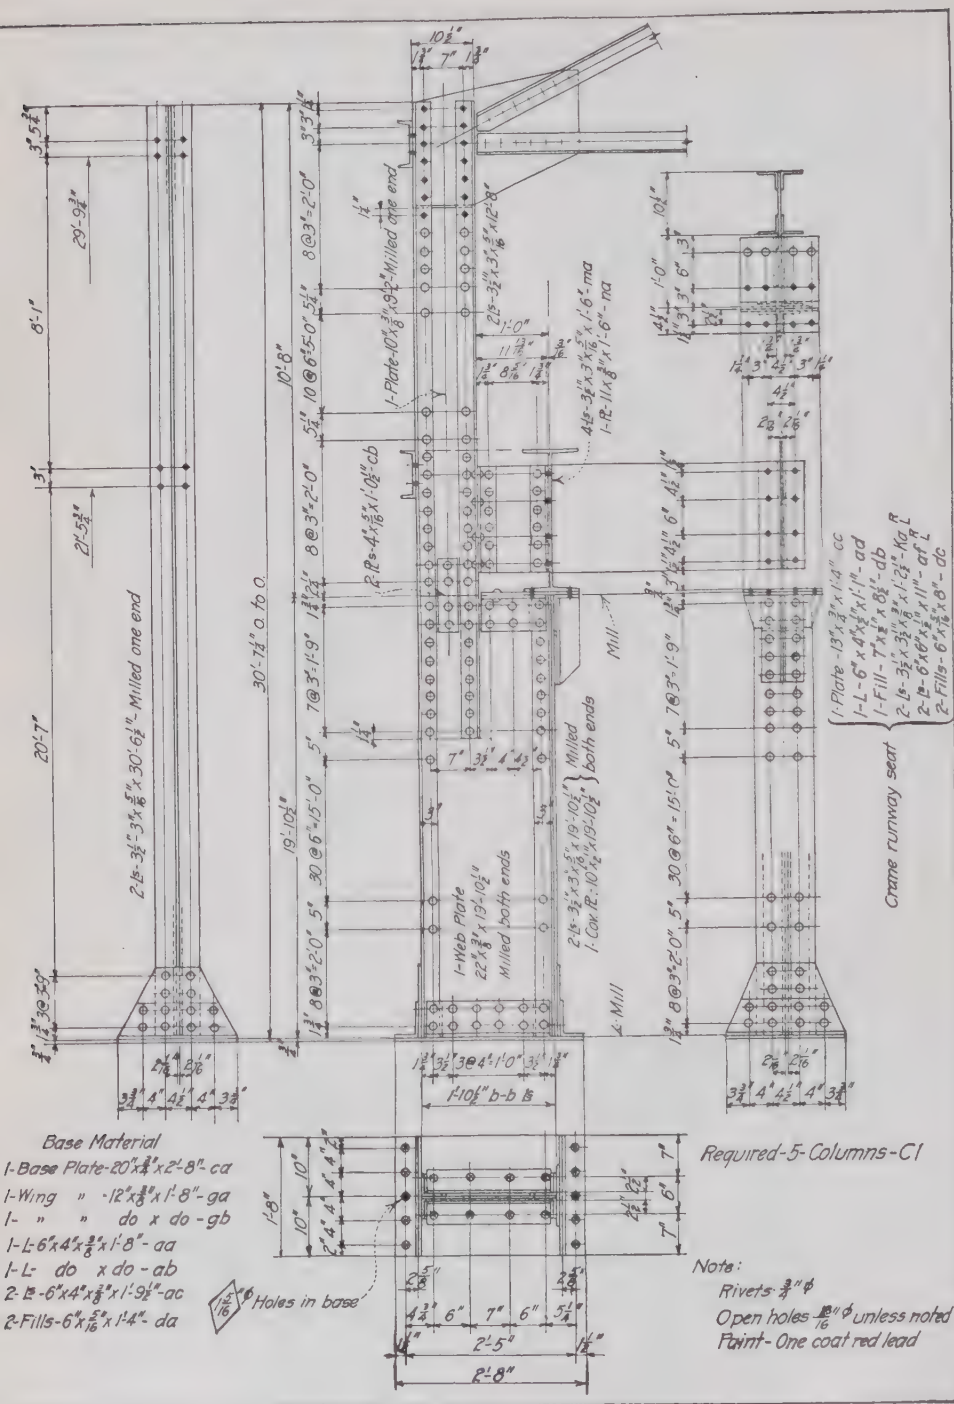 10½"
1¾" 7" 1¾"
3" 5¾"
29'-9¾"
8'-1"
3"
21'-5¾"
20'-7"
2-Ls-3½"x3"x5/16"x30'-6½"- Milled one end
30'-7¼" o. to o.
10'-8"
19'-10½"
3" 3"
8@3"=2'-0"
5¼"
10@6"=5'-0"
5¼"
8@3"=2'-0"
2¼"
1¾"
7@3"=1'-9"
5"
30@6"=15'-0"
5"
8@3"=2'-0"
1¾"
1½"
1-Plate-10"x⅜"x9'-2"-Milled one end
2Ls-3½"x3"x5/16"x12'-8"
1'-0"
8 5/16"
2-Pls-4"x5/16"x1'-0½"-cb
4-Ls-3½"x3"x5/16"x1'-6"-ma
1-Pl-11"x⅜"x1'-6"-na
Mill
1¼"
7" 3½" 4" 4½"
2-Ls-3½"x3"x5/16"x19'-10½"
1-Cov. Pl.-10"x½"x19'-10½"
Milled both ends
1-Web Plate
22"x⅜"x19'-10½"
Milled both ends
Mill
1¾" 3½" 3@4"=1'-0" 3½" 1¾"
1'-10½" b-b Ls
3@3=9"
1¾"
¾"
2 1/16" 2 1/16"
3¾" 4" 4½" 4" 3¾"
10½"
1'-0"
3"
6"
3"
4½"
3"
1¼" 3" 4½" 3" 1¼"
4½"
2 1/16" 2 1/16"
4½"
6"
4½"
3"
1¾"
7@3"=1'-9"
5"
30@6"=15'-0"
5"
8@3"=2'-0"
1¾"
2 1/16" 2 1/16"
3¾" 4" 4½" 4" 3¾"
Crane runway seat
1-Plate-13"x¾"x1'-4"-cc
1-L-6"x4"x½"x1'-1"-ad
1-Fill-7"x½"x8½"-db
2-Ls-3½"x3½"x⅜"x1'-2½"-Ka R L
2-Ls-6"x6"x½"x11"-af R L
2-Fills-6"x5/16"x8"-dc
Base Material
1-Base Plate-20"x¾"x2'-8"-ca
1-Wing " -12"x⅜"x1'-8"-ga
1- " " do x do-gb
1-L-6"x4"x⅜"x1'-8"-aa
1-L- do x do-ab
2-Ls-6"x4"x⅜"x1'-9½"-ac
2-Fills-6"x5/16"x1'-4"-da
15/16"φ Holes in base
1'-8"
10"
10"
2" 4" 4" 4" 4" 2"
7"
6"
7"
2½" 2½"
2⅝" 2⅝"
4¾" 6" 7" 6" 5¼"
1½" 2'-5" 1½"
2'-8"
Required-5-Columns-C1
Note:
Rivets ¾"φ
Open holes 13/16"φ unless noted
Paint-One coat red lead